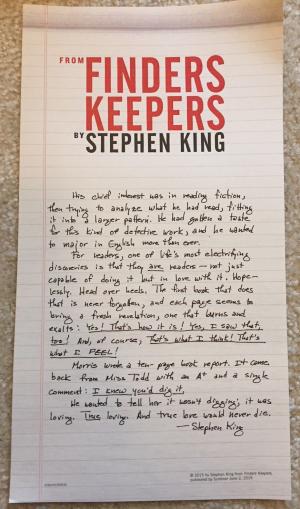 FROM
FINDERS
KEEPERS
BY STEPHEN KING
His chief interest was in reading fiction,
then trying to analyze what he had read, fitting
it into a larger pattern. He had gotten a taste
for this kind of detective work, and he wanted
to major in English more than ever.
For readers, one of life's most electrifying
discoveries is that they are readers — not just
capable of doing it but in love with it. Hope-
lessly. Head over heels. The first book that does
that is never forgotten, and each page seems to
bring a fresh revelation, one that burns and
exalts: Yes! That's how it is! Yes, I saw that,
too! And, of course, That's what I think! That's
what I FEEL!
Morris wrote a ten-page book report. It came
back from Miss Todd with an A+ and a single
comment: I knew you'd dig it.
He wanted to tell her it wasn't digging; it was
loving. True loving. And true love would never die.
— Stephen King
© 2015 by Stephen King from Finders Keepers,
published by Scribner June 2, 2015